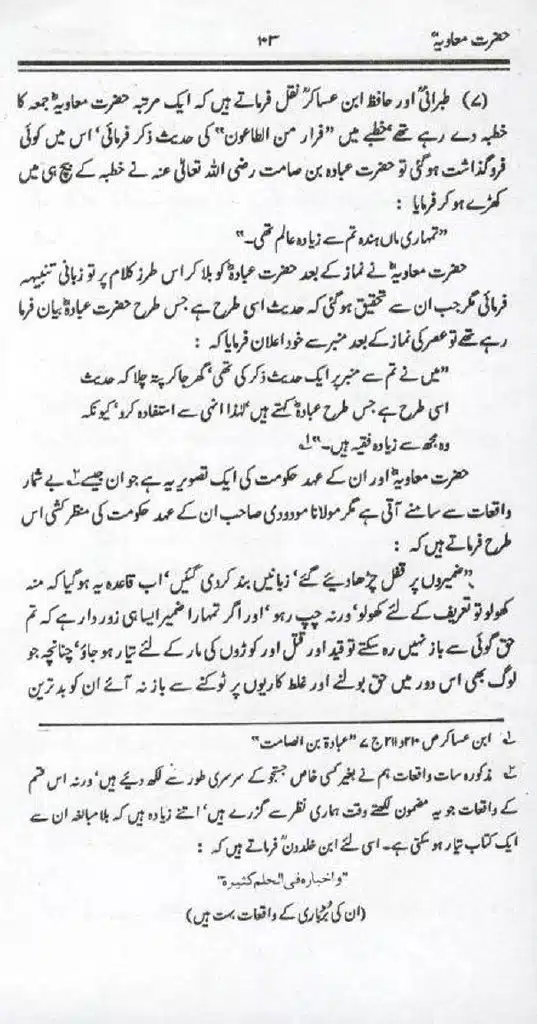 حضرت معاویہؓ ۱۰۳
(۷) طبرانیؒ اور حافظ ابن عساکرؒ نقل فرماتے ہیں کہ ایک مرتبہ حضرت معاویہؓ جمعہ کا
خطبہ دے رہے تھے، خطبے میں ”فرار من الطاعون“ کی حدیث ذکر فرمائی، اس میں کوئی
فروگذاشت ہو گئی تو حضرت عبادہ بن صامت رضی اللہ تعالیٰ عنہ نے خطبہ کے بیچ ہی میں
کھڑے ہو کر فرمایا :
”تمہاری ماں ہندہ تم سے زیادہ عالم تھی۔“
حضرت معاویہؓ نے نماز کے بعد حضرت عبادہؓ کو بلا کر اس طرز کلام پر تو زبانی تنبیہہ
فرمائی مگر جب ان سے تحقیق ہو گئی کہ حدیث اسی طرح ہے جس طرح حضرت عبادہؓ بیان فرما
رہے تھے تو عصر کی نماز کے بعد منبر سے خود اعلان فرمایا کہ :
”میں نے تم سے منبر پر ایک حدیث ذکر کی تھی، گھر جا کر پتہ چلا کہ حدیث
اسی طرح ہے جس طرح عبادہؓ کہتے ہیں، لہٰذا انہی سے استفادہ کرو، کیونکہ
وہ مجھ سے زیادہ فقیہ ہیں۔“ ۱؎
حضرت معاویہؓ اور ان کے عہد حکومت کی ایک تصویر یہ ہے جو ان جیسے ۲؎ بے شمار
واقعات سے سامنے آتی ہے مگر مولانا مودودی صاحب ان کے عہد حکومت کی منظر کشی اس
طرح فرماتے ہیں کہ :
”ضمیروں پر قفل چڑھا دیئے گئے، زبانیں بند کر دی گئیں، اب قاعدہ یہ ہو گیا کہ منہ
کھولو تو تعریف کے لئے کھولو، ورنہ چپ رہو، اور اگر تمہارا ضمیر ایسا ہی زوردار ہے کہ تم
حق گوئی سے باز نہیں رہ سکتے تو قید اور قتل اور کوڑوں کی مار کے لئے تیار ہو جاؤ، چنانچہ جو
لوگ بھی اس دور میں حق بولنے اور غلط کاریوں پر ٹوکنے سے باز نہ آئے ان کو بدترین
۱؎ ابن عساکر ص ۲۱۰ و ۲۱۱ ج ۷ ”عبادۃ بن الصامت“
۲؎ مذکورہ سات واقعات ہم نے بغیر کسی خاص جستجو کے سرسری طور سے لکھ دیئے ہیں، ورنہ اس قسم
کے واقعات جو یہ مضمون لکھتے وقت ہماری نظر سے گزرے ہیں، اتنے زیادہ ہیں کہ بلامبالغہ ان سے
ایک کتاب تیار ہو سکتی ہے۔ اسی لئے ابن خلدونؒ فرماتے ہیں کہ :
”واخبارہ فی الحلم کثیرۃ“
(ان کی بُردباری کے واقعات بہت ہیں)